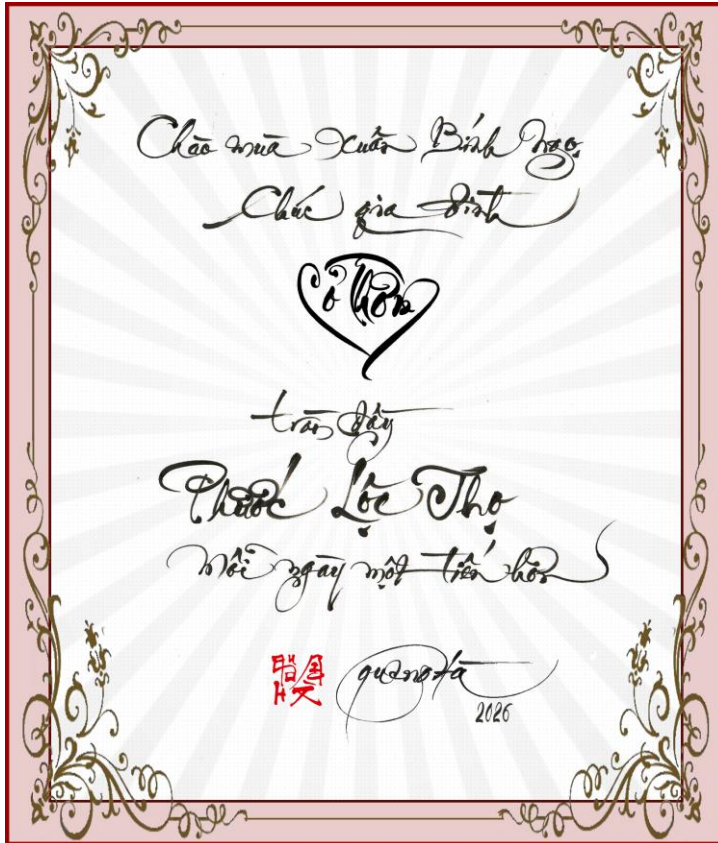 Chào mùa Xuân Bính Ngọ
Chúc gia đình
tràn đầy
Phước Lộc Thọ
Mỗi ngày một tiến hơn
2026